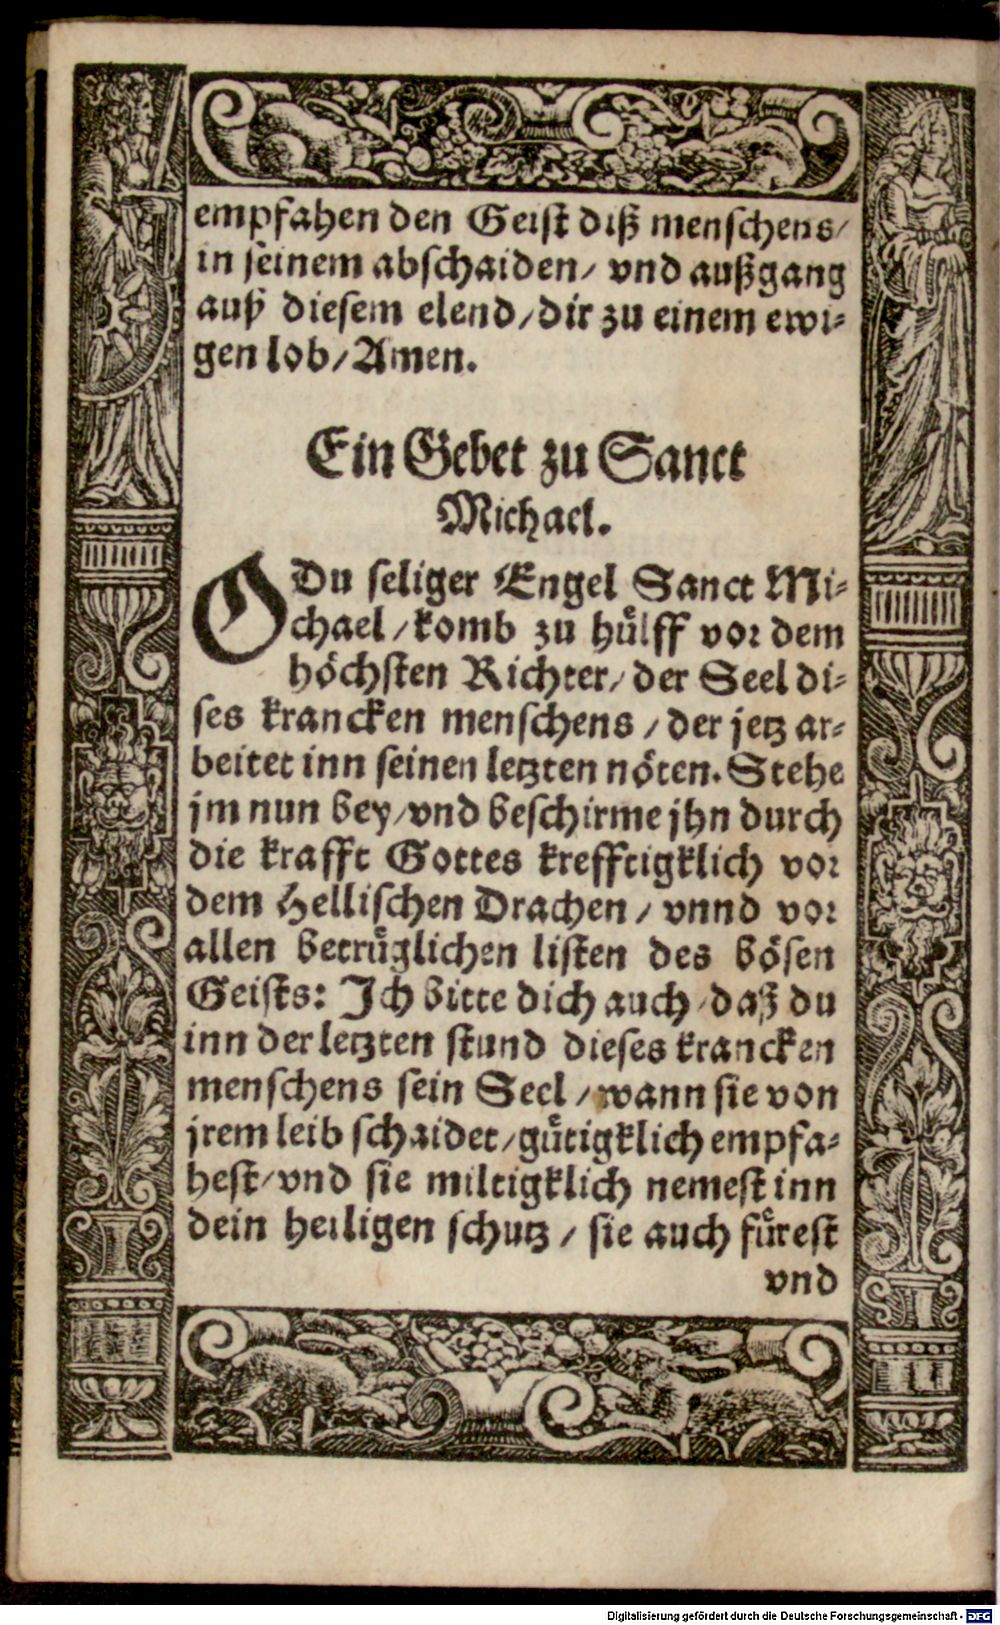 empfahen den Geist diß menschens/
in seinem abschaiden/ vnd außgang
auß diesem elend/ dir zu einem ewi-
gen lob/ Amen.
Ein Gebet zu Sanct
Michael.
O Du seliger Engel Sanct Mi-
chael/ komb zu hůlff vor dem
höchsten Richter/ der Seel di-
ses krancken menschens/ der jetz ar-
beitet inn seinen letzten nöten. Stehe
jm nun bey/ vnd beschirme jhn durch
die krafft Gottes krefftigklich vor
dem Hellischen Drachen/ vnnd vor
allen betrůglichen listen des bösen
Geists: Ich bitte dich auch/ daß du
inn der letzten stund dieses krancken
menschens sein Seel/ wann sie von
jrem leib schaidet/ gůtigklich empfa-
hest/ vnd sie miltigklich nemest inn
dein heiligen schutz/ sie auch fůrest
vnd
Digitalisierung gefördert durch die Deutsche Forschungsgemeinschaft - DFG